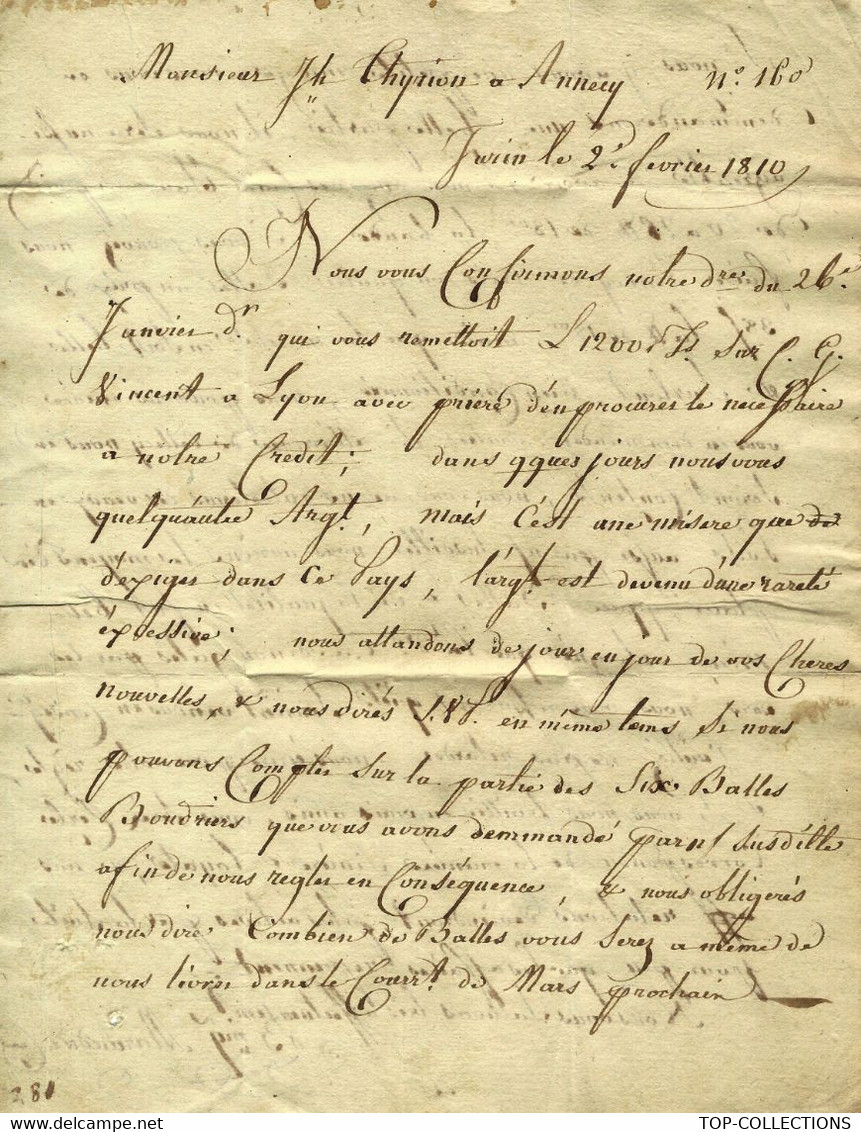 Monsieur Jh Thyrion a Annecy N.o 160
Turin le 2.e fevrier 1810
Nous vous Confirmons notre dre du 26.e
Janvier dr. qui vous remettoit L 1200 Fs. sur C. G.
Vincent a Lyon avec prière d'en procurer le necessaire
a notre Credit; dans qques jours nous vous
Argt., mais C'est une misere que de
d'exiger dans Ce Pays, l'argt. est devenu d'une rareté
éxcessive; nous attandons de jour en jour de vos Cheres
nouvelles, & nous dirés S.V.P. en même tems Si nous
pouvons Compter Sur la partie des Six Balles
Boudriers que vous avons demmandé par nf susditte
afin de nous regler en Conséquence, & nous obligerés
nous dire Combien de Balles vous Serez a même de
nous livrer dans le Courrt. de Mars prochain
281
TOP-COLLECTIONS